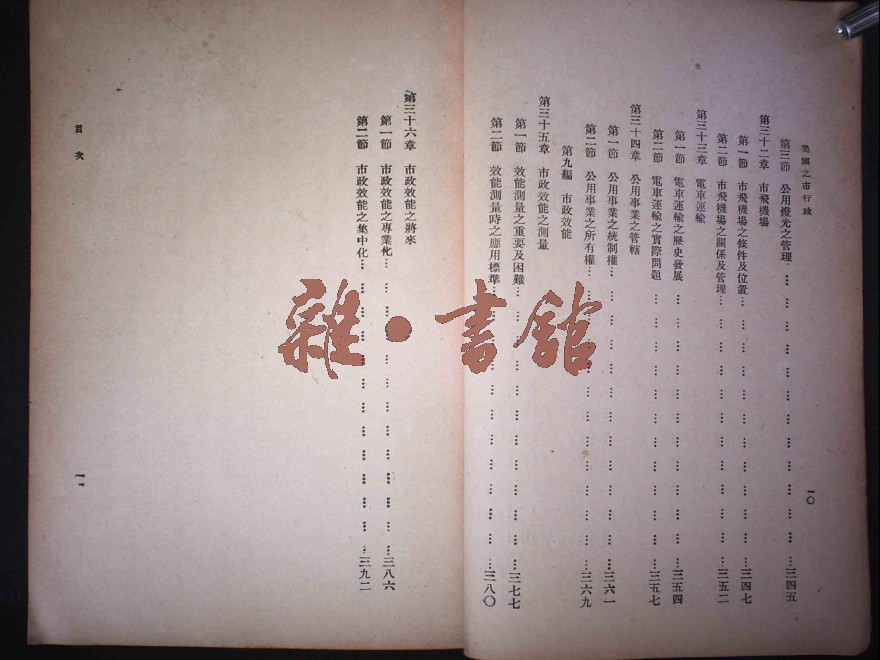 美國之市行政
一〇
第三節 公用燈光之管理…………三四五
第三十二章 市飛機場
第一節 市飛機場之條件及位置…………三四七
第二節 市飛機場之關係及管理…………三五二
第三十三章 電車運輸
第一節 電車運輸之歷史發展…………三五四
第二節 電車運輸之實際問題…………三五七
第三十四章 公用事業之管轄
第一節 公用事業之統制權…………三六一
第二節 公用事業之所有權…………三六九
第九編 市政效能
第三十五章 市政效能之測量
第一節 效能測量之重要及困難…………三七七
第二節 效能測量時之應用標準…………三八〇
第三十六章 市政效能之將來
第一節 市政效能之專業化…………三八六
第二節 市政效能之集中化…………三九二
目次
一一
雜·書館